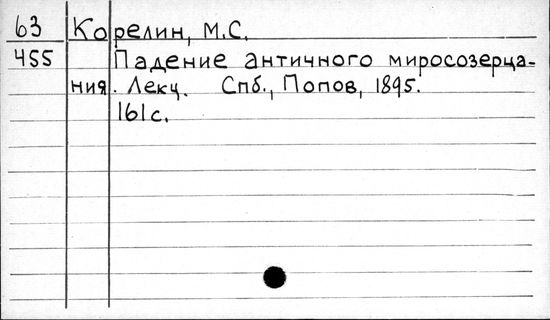 63 Корелин, М.С.
455 Падение античного миросозерца-
ния. Лекц. Спб., Попов, 1895.
161с.